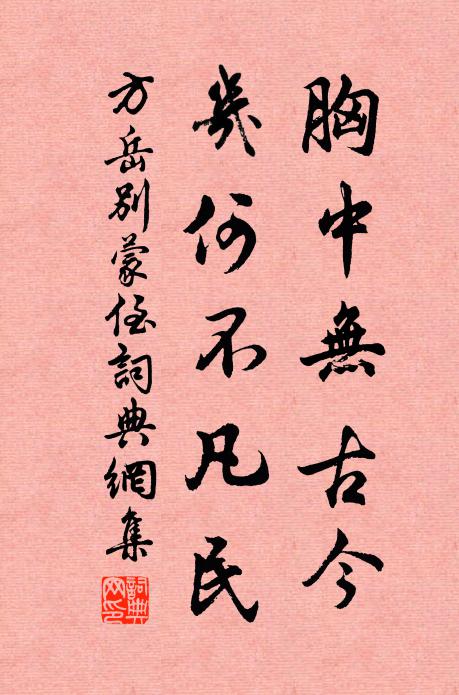 胸中無古今
幾何不凡民
方岳別蒙侄詞典網集
詞典網印